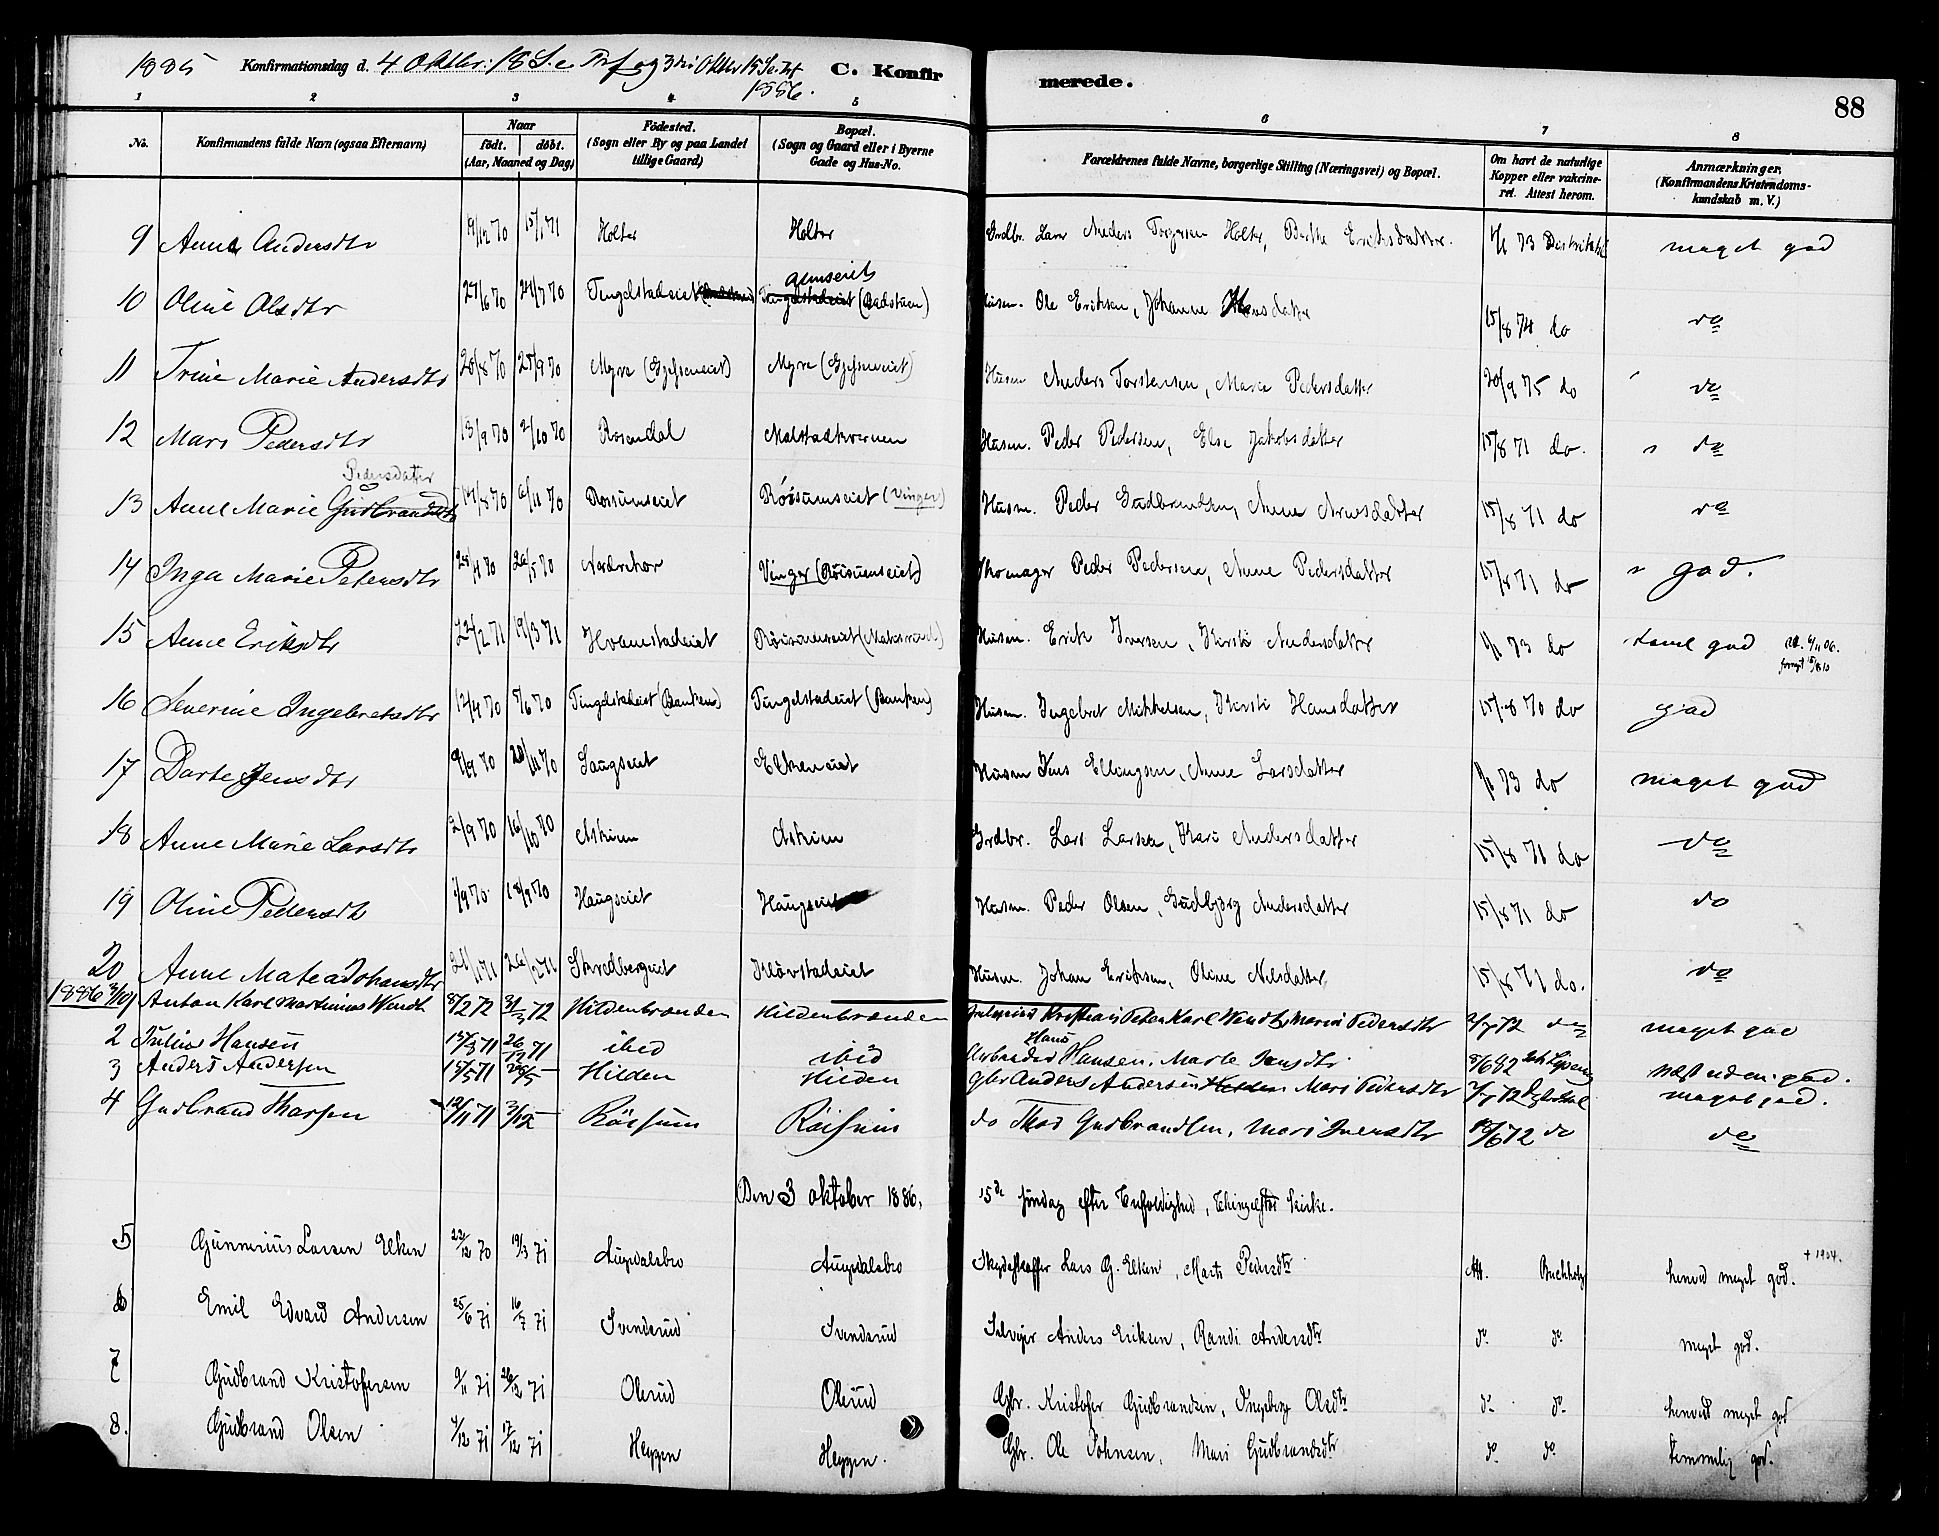 1885 Konfirmationsdag d. 4 Oktbr. 18 S. e. Trf og 3die Oktbr 15 Se. Trf
1886.
C. Konfirmerede.
88
1 2 3 4 5 6 7 8
No. Konfirmandens fulde Navn (ogsaa Efternavn) Naar født. døbt. (Aar, Maaned og Dag) Fødested. (Sogn eller By og paa Landet tillige Gaard) Bopæl. (Sogn og Gaard eller i Byerne Gade og Hus-No. Forældrenes fulde Navne, borgerlige Stilling (Næringsvei) og Bopæl. Om havt de naturlige Kopper eller vakcineret. Attest herom. Anmærkninger. (Konfirmandens Kristendomskundskab m. V.)
9 Anne Andersdtr 9/12 70 15/1 71 Holter Holter Grdbr. Anders Torgersen Holter, Berthe Eriksdatter. 1/1 73 Distriktsl meget god
10 Oline Olsdtr 27/6 70 24/7 70 Tingelstadeiet Tingelstadeiet (Badstuen) Husm. Ole Eriksen, Johanne Hansdatter 15/8 74 do do
11 Trine Marie Andersdtr 28/8 70 25/9 70 Myra Myra Husm Anders Torstensen, Marie Pedersdatter 20/9 75 do do
12 Mari Pedersdtr 13/9 70 2/10 70 Rosendal Molstadkvernen Husm. Peder Pedersen, Else Jakobsdatter 15/8 71 do. do
Pedersdatter
13 Anne Marie Gudbrandsdtr 14/8 70 6/11 70 Røisumseiet Røisumseiet (Vinger) Husm. Peder Gudbrandsen, Anne Arnesdatter 15/8 71 do do
14 Inga Marie Petersdtr 24/4 70 26/5 70 Nordrehov Vinger (Røisumseiet) Skomager Peder Pedersen, Anne Pedersdatter 15/8 71 do god.
15 Anne Eriksdtr 22/2 71 19/3 71 Hvamstadeiet Røisumseiet Husm. Erik Iversen, Kirsti Andersdatter 1/1 73 do teml god att. 6/11 06.
16 Severine Ingebretsdtr 12/4 70 5/6 70 Tingelstadeiet (Banken) Tingelstadeiet (Banken) Husm. Ingebret Mikkelsen, Kirsti Hansdatter 15/8 70 do god
17 Dorte Jensdtr 9/9 70 20/11 70 Haugseiet Elkeneiet Husm Jens Ellingsen, Anne Larsdatter 1/1 73 do meget god
18 Anne Marie Larsdtr 2/9 70 16/10 70 Askim Askim Grdbr. Lars Larsen, Kari Andersdatter 15/8 71 do do
19 Oline Pedersdtr 1/9 70 18/9 70 Haugseiet Haugseiet Husm. Peder Olsen, Gudbjørg Andersdatter 15/8 71 do do
20 Anne Matea Johansdtr 21/1 71 26/2 71 Skredbergeiet Kløvstadeiet Husm. Johan Eriksen, Oline Nilsdatter 15/8 71 do. do
1886 3/10 1 Anton Karl Martinius Wendt 8/2 72 31/3 72 Hildenbranden Hildenbranden Kristian Peter Karl Wendt, Marie Pedersdtr 2/7 72 do meget god
2 Julius Hansen 15/8 71 26/12 71 ibid ibid Arbeider Hans Hansen, Marte Jensdtr. 8/6 82
3 Anders Andersen 15/5 71 Hilden Hilden Gbr Anders Andersen Hilden Mari Pedersdtr 2/7 72 meget god.
4 Gudbrand Thorsen 12/11 71 3/12 Röisum Röisum do Thor Gudbrandsen, Mari Iversdtr 18/6 72 do do
Den 3 oktober 1886, 15de søndag efter Trefoldighed, Thingelstad Kirke.
5 Gunnerius Larsen Elken 22/12 70 19/3 71 Augedalsbro Augedalsbro Skydsskaffer Lars G. Elken, Marte Pedersdtr Att. Buchholz henved meget god. † 1904.
6 Emil Edvard Andersen 25/6 71 16/7 71 Svenserud Svenserud Selveier Anders Eriksen, Randi Andersdtr do. do. meget god.
7 Gudbrand Kristofersen 9/11 71 26/12 71 Olerud Olerud Gbr. Kristofer Gudbrandsen, Ingeborg Olsdtr do. do. henved meget god
8. Gudbrand Olsen 4/12 71 17/12 71 Heggen Heggen. Gbr. Ole Johnsen, Mari Gudbrandsdtr do. do. temmelig god.